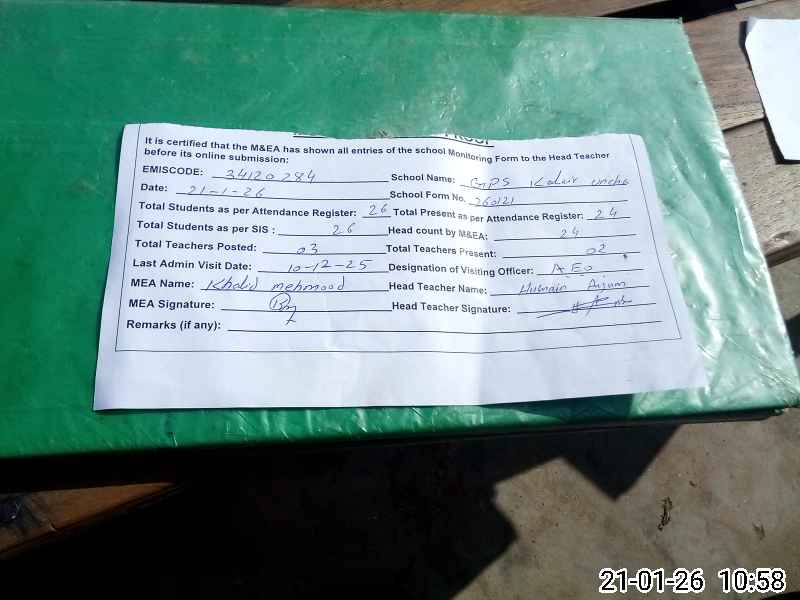 PROOF
It is certified that the M&EA has shown all entries of the school Monitoring Form to the Head Teacher
before its online submission:
EMISCODE: 34120284 School Name: GPS Kalair uncha
Date: 21-1-26 School Form No. 260121
Total Students as per Attendance Register: 26 Total Present as per Attendance Register: 24
Total Students as per SIS : 26 Head count by M&EA: 24
Total Teachers Posted: 03 Total Teachers Present: 02
Last Admin Visit Date: 10-12-25 Designation of Visiting Officer: AEO
MEA Name: Khalid mehmood Head Teacher Name: Husnain
MEA Signature: Head Teacher Signature:
Remarks (if any):
21-01-26 10:58